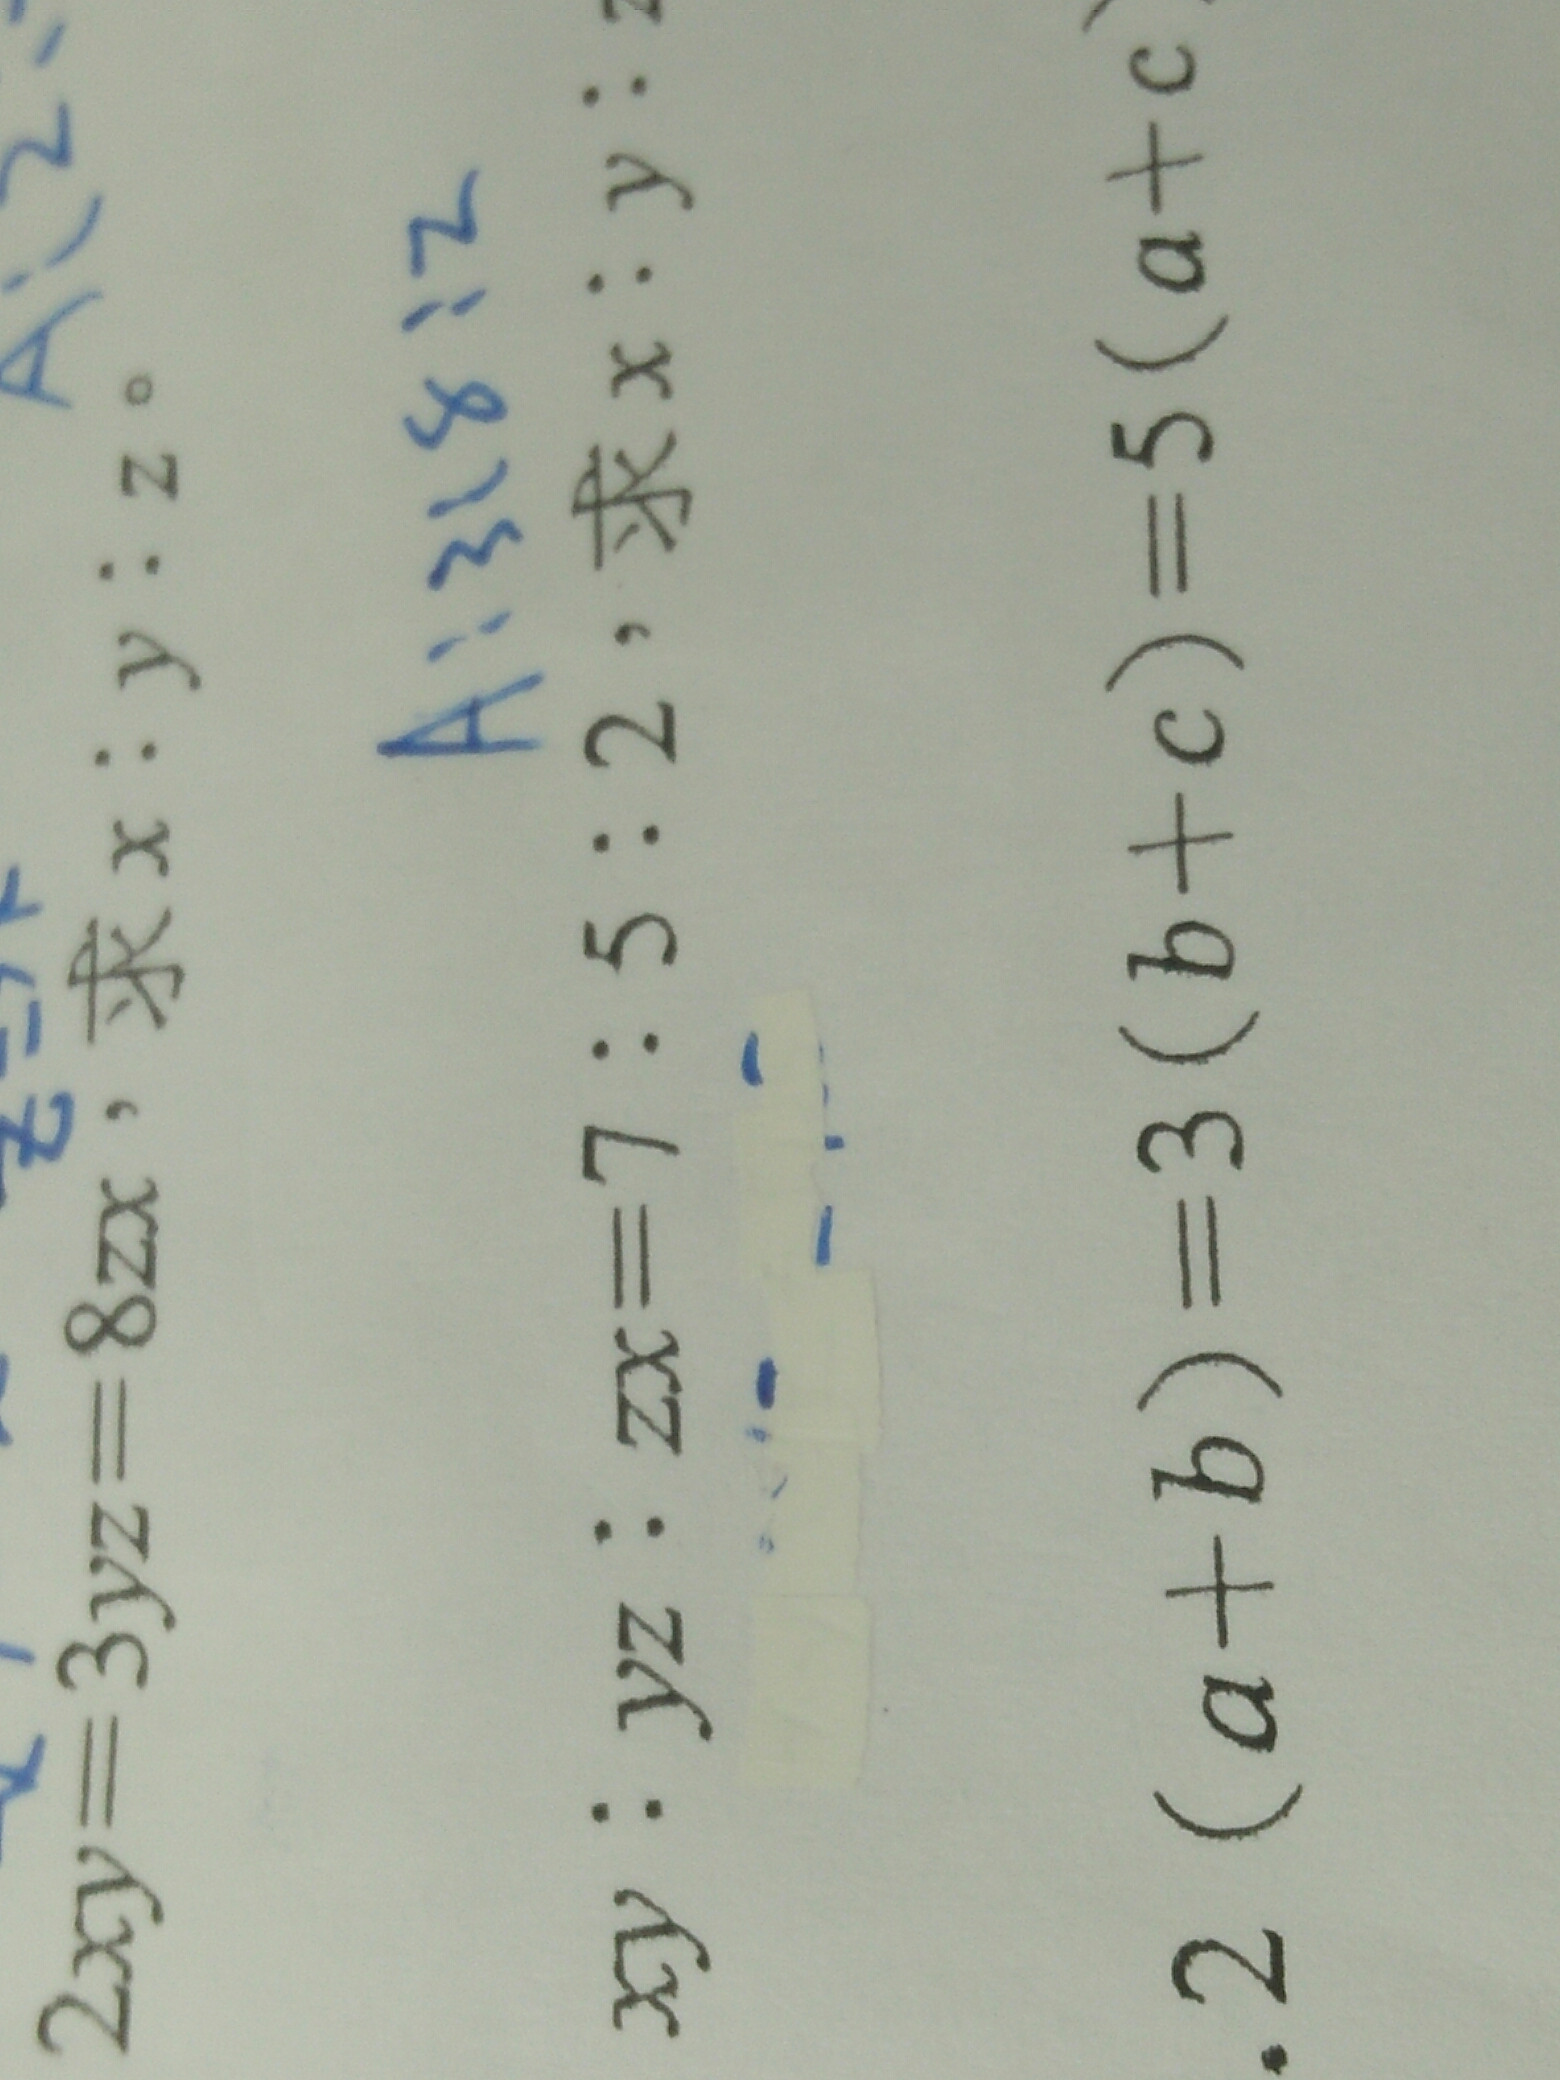 2xy=3yz=8zx，求x：y：z。
A：3：8：2
xy：yz：zx=7：5：2，求x：y：z
.2(a+b)=3(b+c)=5(a+c)